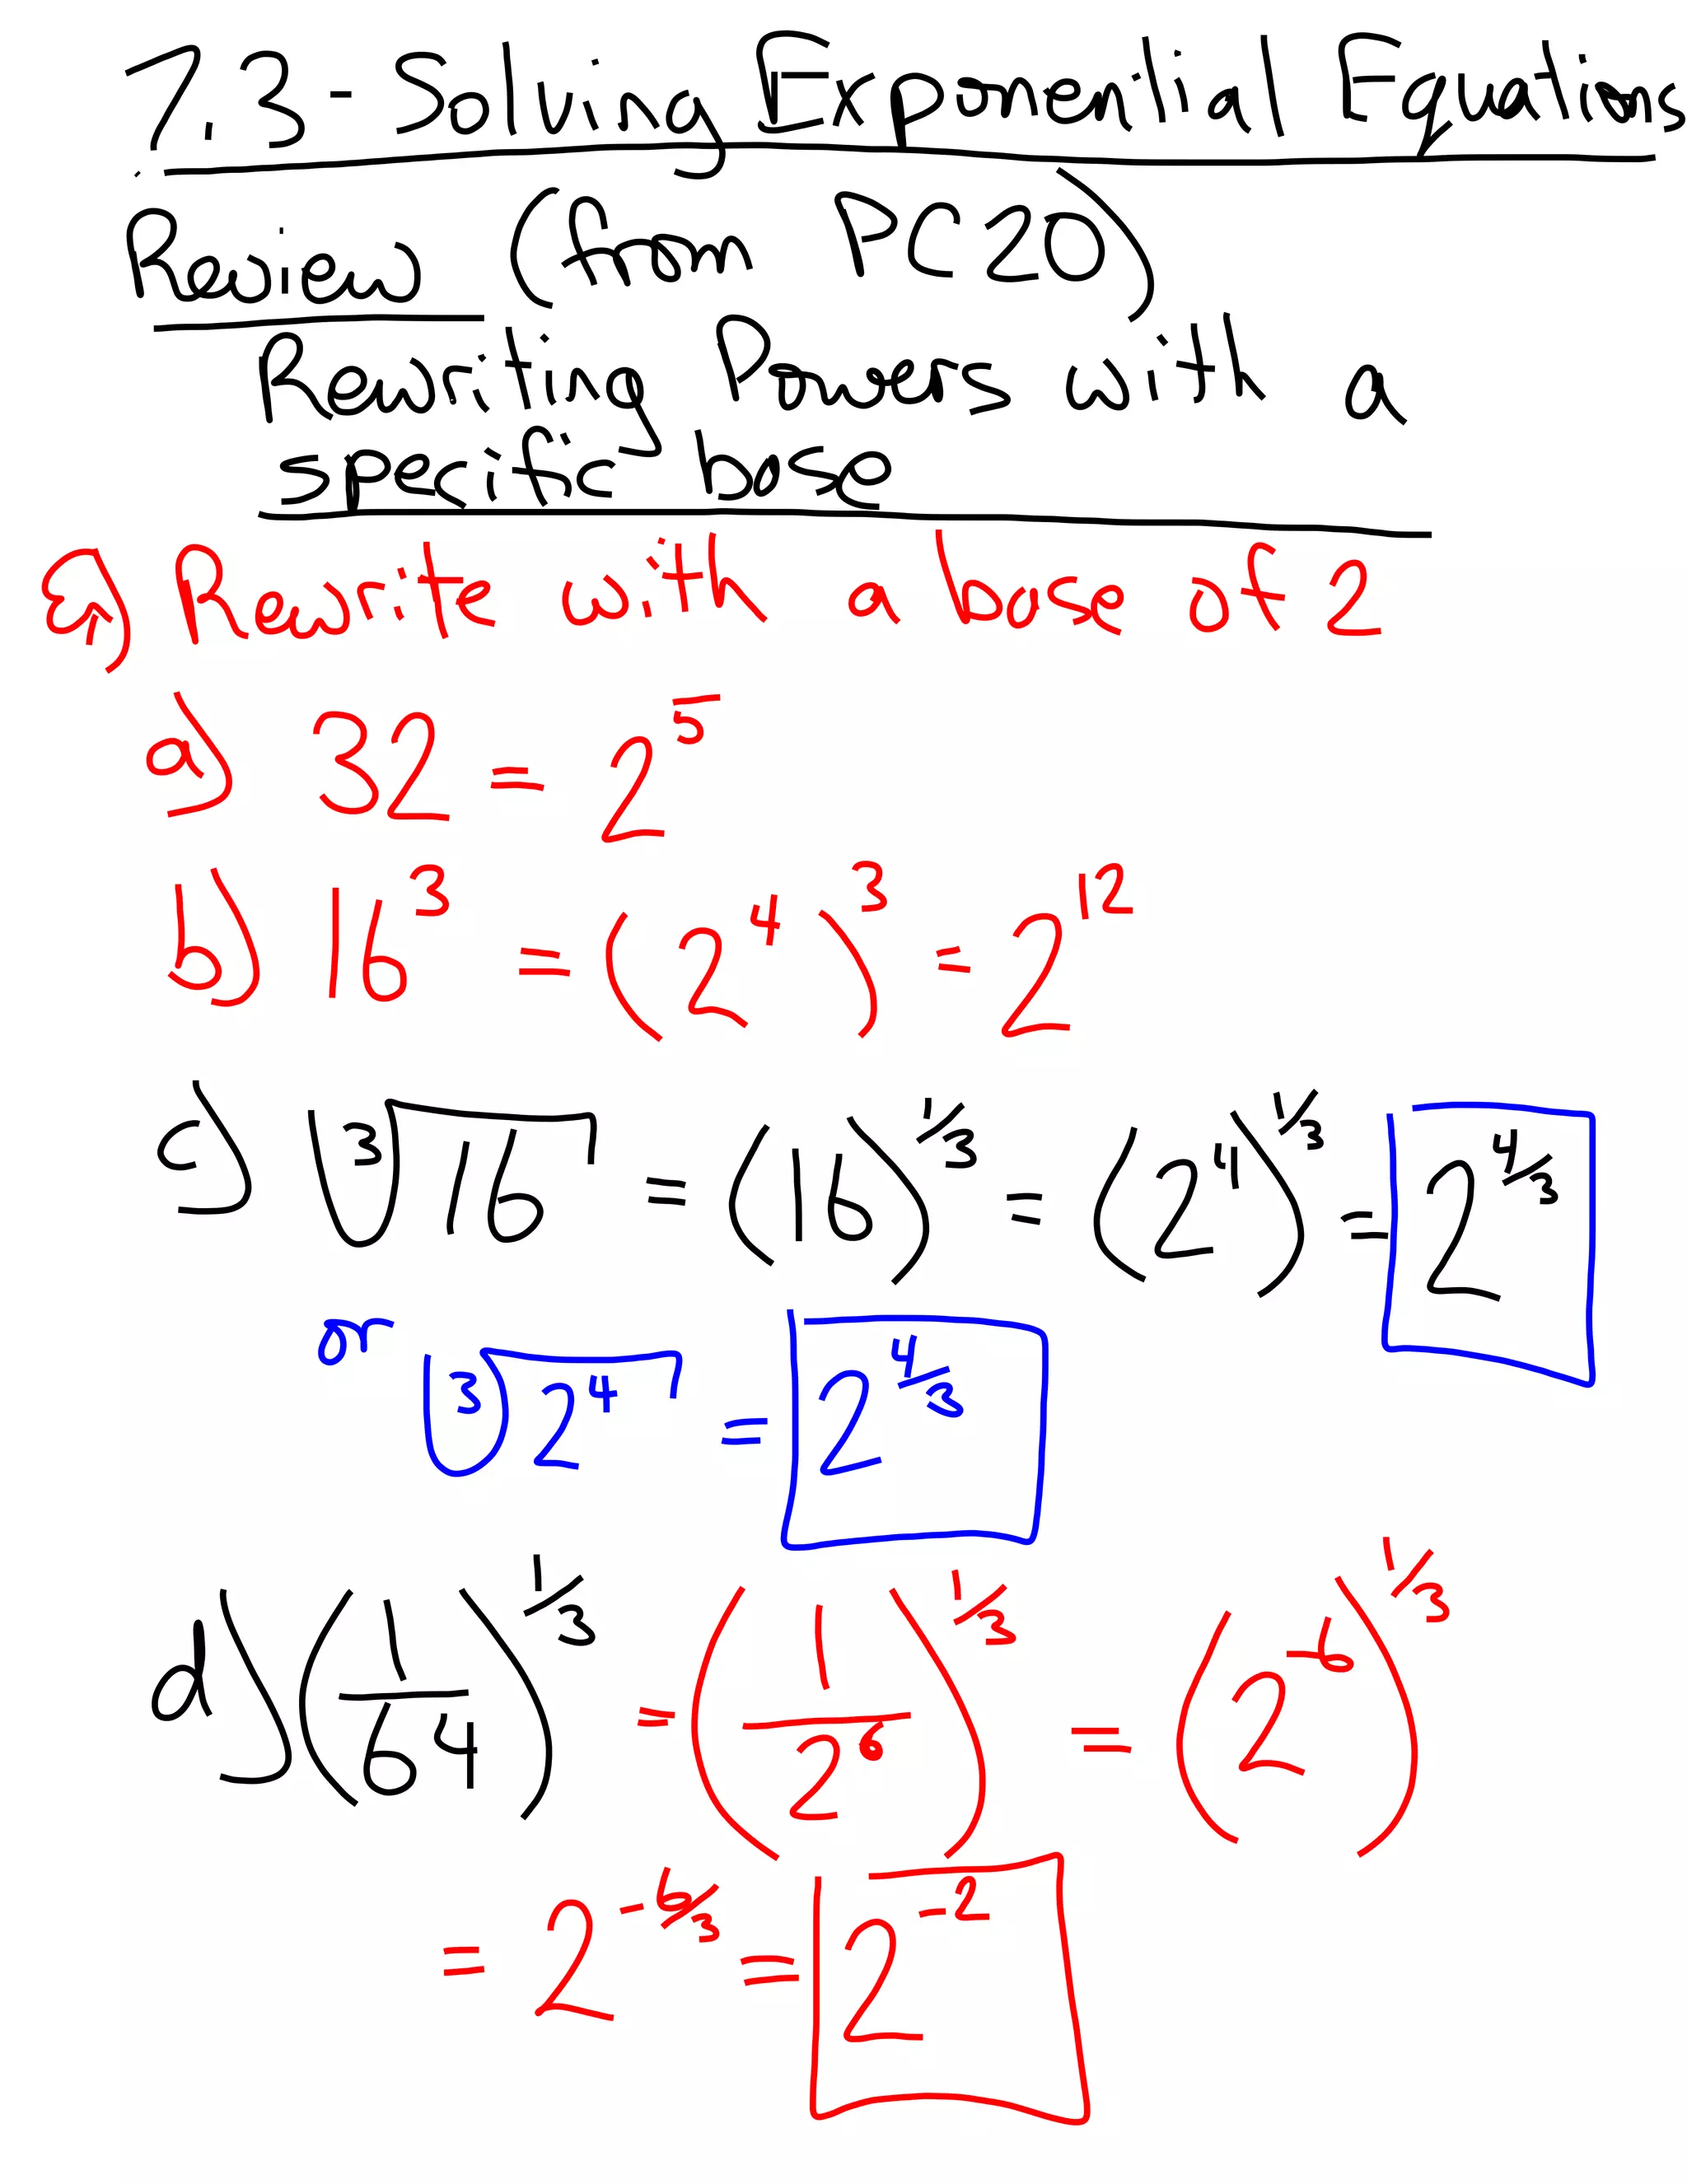 7.3 - Solving Exponential Equations
Review (from PC20)
Rewriting Powers with a
specific base
Rewrite with a base of 2
a) 32 = 2^5
b) 16^3 = (2^4)^3 = 2^12
c) ∛16 = (16)^1/3 = (2^4)^1/3 = 2^4/3
or ∛2^4 = 2^4/3
d) (1/64)^1/3 = (1/2^6)^1/3 = (2^-6)^1/3
= 2^-6/3 = 2^-2